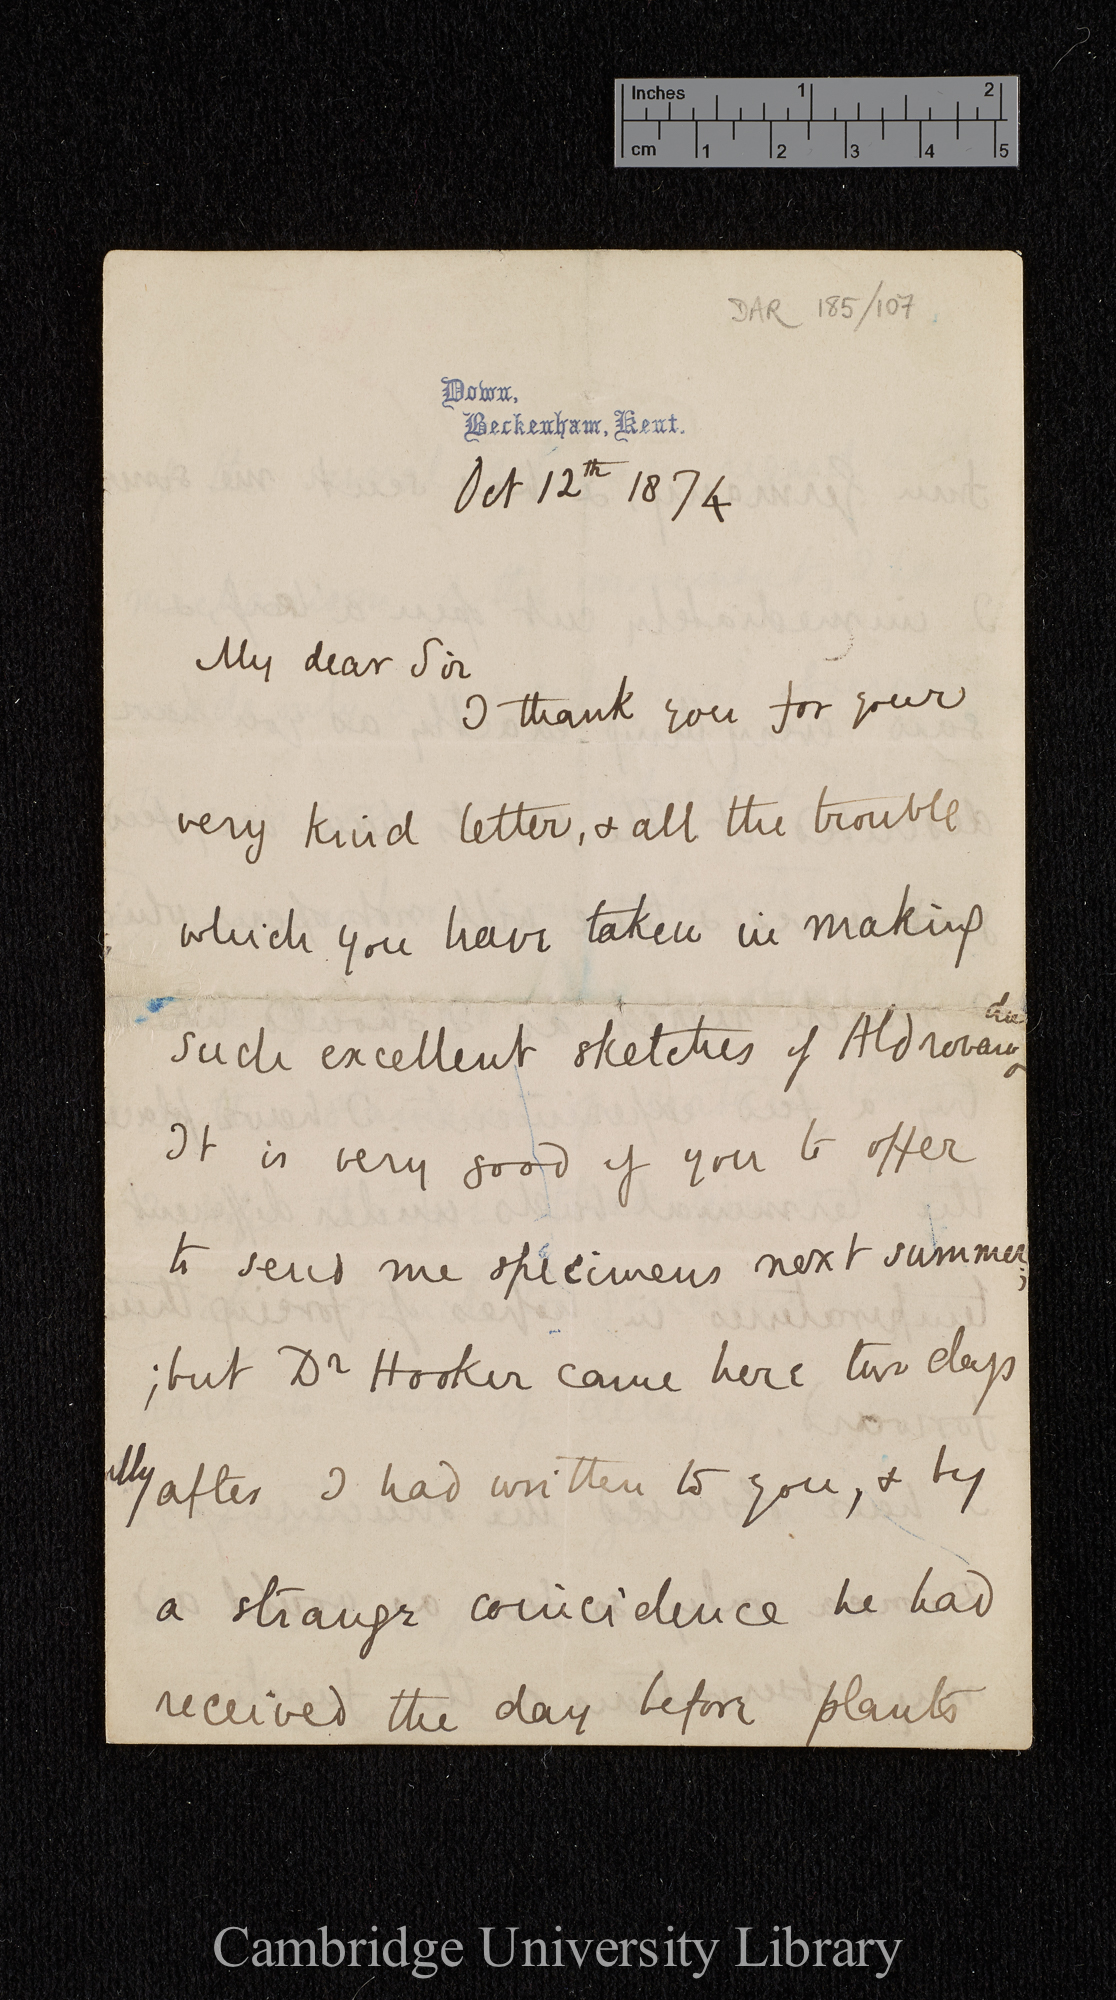 Inches 1 2
cm 1 2 3 4 5
DAR 185/107
Down,
Beckenham, Kent.
Oct 12th 1874
My dear Sir
I thank you for your
very kind letter, & all the trouble
which you have taken in making
such excellent sketches of Aldrovan
It is very good of you to offer
to send me specimens next summer;
; but Dr Hooker came here two days
after I had written to you, & by
a strange coincidence he had
received the day before plants
Cambridge University Library